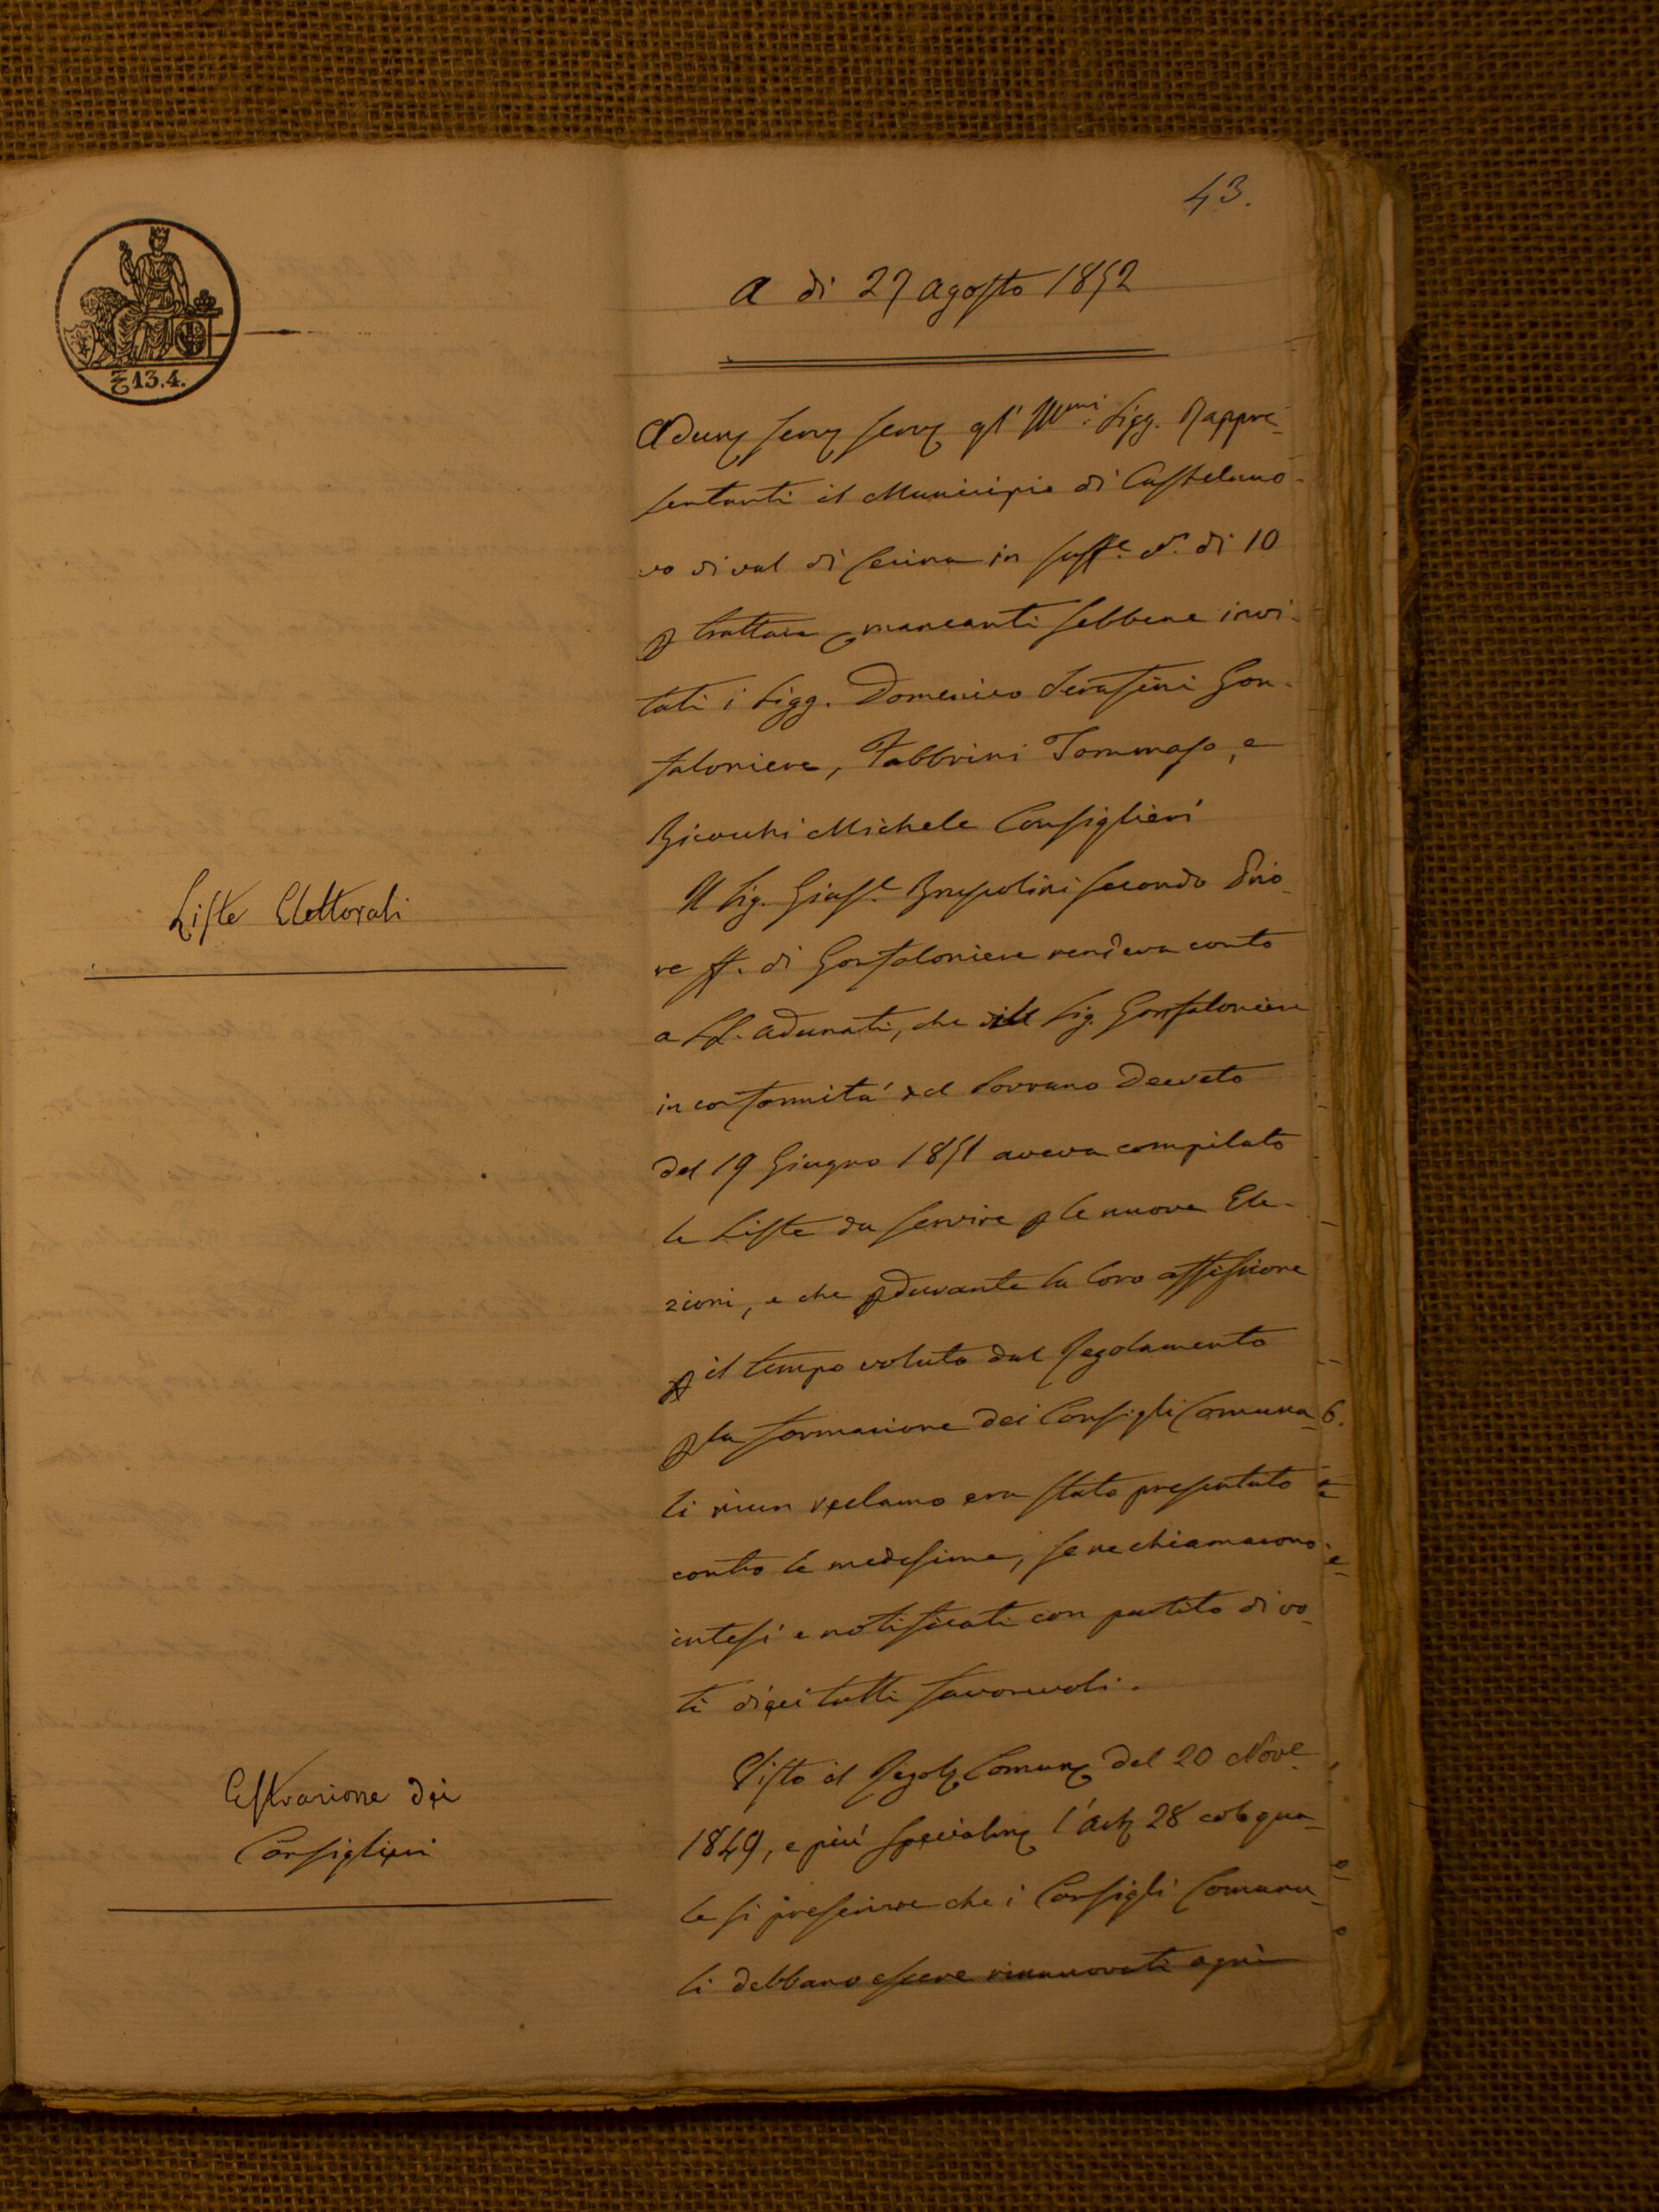 43.
13.4.
A dì 27 Agosto 1852
Adun serv serv gl' Illmi. Sigg. Rappre-
sentanti il Municipio di Castelnuo-
vo di val di Cecina in suffe. N. di 10
p trattare, mancanti sebbene invi-
tati i Sigg. Domenico Serafini Gon-
faloniere, Fabbrini Tommaso, e
Bicocchi Michele Consiglieri
Liste Elettorali
Il Sig. Brusolini secondo Prio-
re ff. di Gonfaloniere rendeva conto
a LL. Adunati, che il Sig. Gonfaloniere
in conformità del Sovrano Decreto
del 19 Giugno 1851 aveva compilato
le Liste da servire p le nuove Ele-
zioni, e che durante la loro affissione
p il tempo voluto dal Regolamento
p la formazione dei Consigli Comuna-
li niun reclamo era stato presentato
contro le medesime, se ne chiamarono
intesi e notificati con partito di vo-
ti dieci tutti favorevoli.
Estrazione dei
Consiglieri
Visto il Regol Comun del 20 Nove.
1849, e più specialm l'Art 28 col qua-
le si prescrive che i Consigli Comuna-
li debbano essere rinnuovati ogni